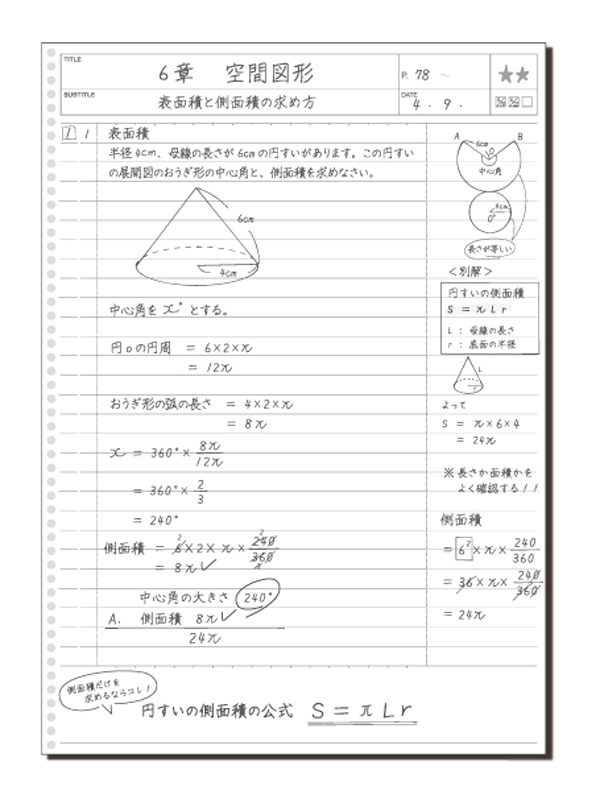 TITLE
6章 空間図形
P. 78 ~
★★
SUBTITLE
表面積と側面積の求め方
DATE
4 . 9 .
1 1 表面積
半径4cm、母線の長さが6cmの円すいがあります。この円すい
の展開図のおうぎ形の中心角と、側面積を求めなさい。
6cm
4cm
中心角を x° とする。
円Oの円周 = 6×2×π
= 12π
おうぎ形の弧の長さ = 4×2×π
= 8π
x = 360° × 8π/12π
= 360° × 2/3
= 240°
側面積 = 6×2×π× 240/360
2
2
= 8π✓
中心角の大きさ 240°
A. 側面積 8π✓
24π
A
B
6cm
O
中心角
4cm
O'
長さが等しい
<別解>
円すいの側面積
S = πLr
L : 母線の長さ
r : 底面の半径
L
r
よって
S = π×6×4
= 24π
※長さか面積かを
よく確認する!!
側面積
= 6²×π× 240/360
= 36×π× 240/360
= 24π
側面積だけを
求めるならコレ!
円すいの側面積の公式 S = πLr